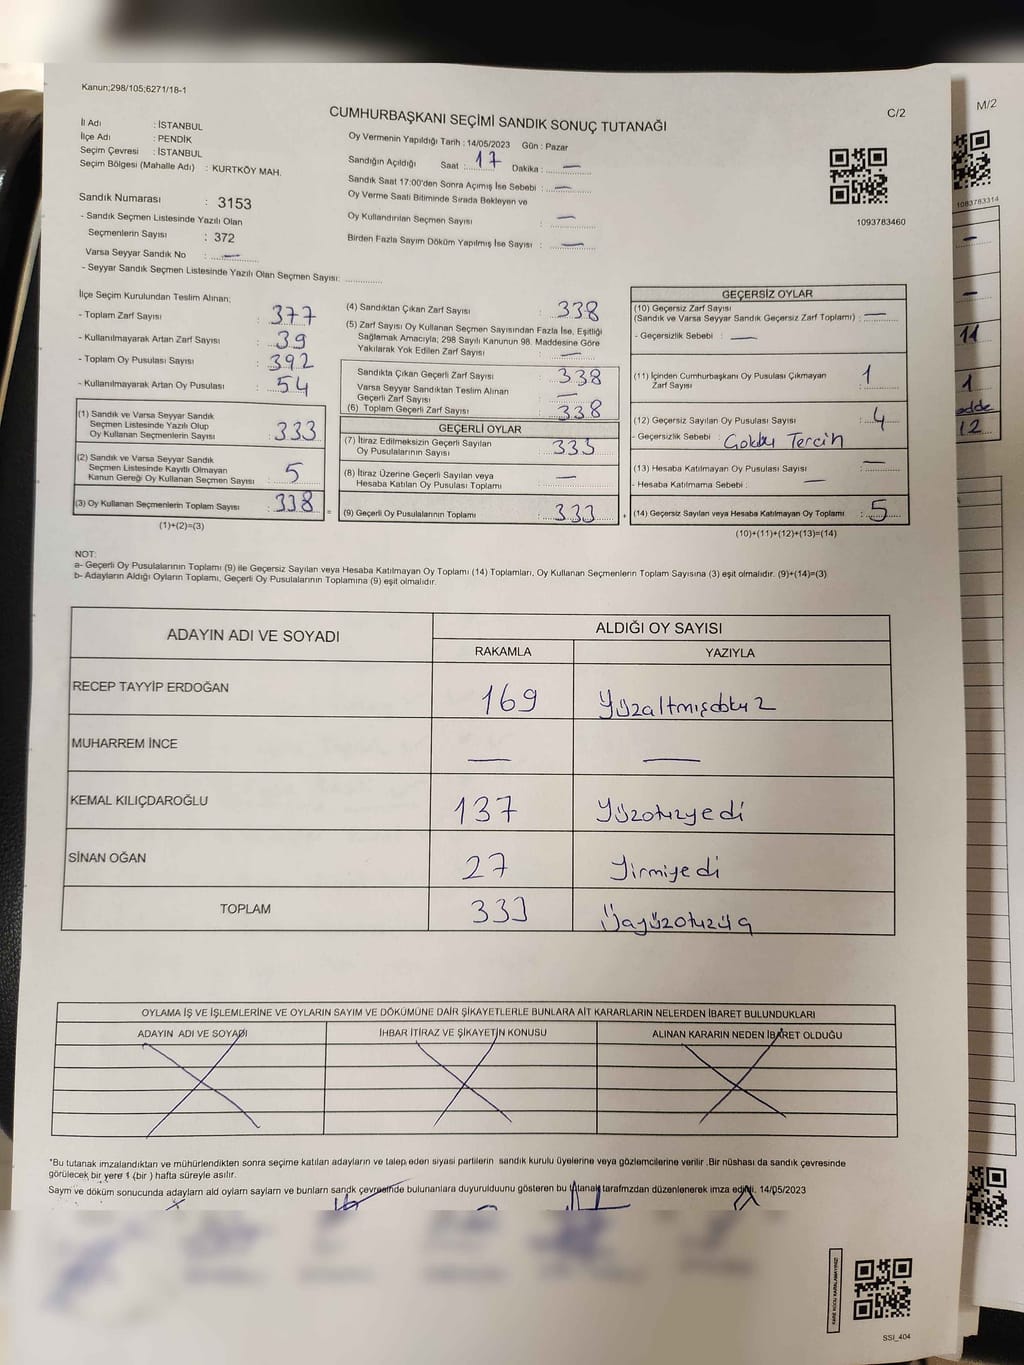 Kanun;298/105;6271/18-1
CUMHURBAŞKANI SEÇİMİ SANDIK SONUÇ TUTANAĞI
C/2
M/2
İl Adı : İSTANBUL
İlçe Adı : PENDİK
Seçim Çevresi : İSTANBUL
Seçim Bölgesi (Mahalle Adı) : KURTKÖY MAH.
Sandık Numarası : 3153
- Sandık Seçmen Listesinde Yazılı Olan
Seçmenlerin Sayısı : 372
Varsa Seyyar Sandık No : —
- Seyyar Sandık Seçmen Listesinde Yazılı Olan Seçmen Sayısı:
Oy Vermenin Yapıldığı Tarih : 14/05/2023 Gün : Pazar
Sandığın Açıldığı Saat : 17 Dakika : —
Sandık Saat 17:00'den Sonra Açımış İse Sebebi : —
Oy Verme Saati Bitiminde Sırada Bekleyen ve
Oy Kullandırılan Seçmen Sayısı : —
Birden Fazla Sayım Döküm Yapılmış İse Sayısı : —
1093783460
1083783314
İlçe Seçim Kurulundan Teslim Alınan;
- Toplam Zarf Sayısı : 377
- Kullanılmayarak Artan Zarf Sayısı : 39
- Toplam Oy Pusulası Sayısı : 392
- Kullanılmayarak Artan Oy Pusulası : 54
(1) Sandık ve Varsa Seyyar Sandık
Seçmen Listesinde Yazılı Olup
Oy Kullanan Seçmenlerin Sayısı : 333
(2) Sandık ve Varsa Seyyar Sandık
Seçmen Listesinde Kayıtlı Olmayan
Kanun Gereği Oy Kullanan Seçmen Sayısı : 5
(3) Oy Kullanan Seçmenlerin Toplam Sayısı : 338
(1)+(2)=(3)
(4) Sandıktan Çıkan Zarf Sayısı : 338
(5) Zarf Sayısı Oy Kullanan Seçmen Sayısından Fazla İse, Eşitliği
Sağlamak Amacıyla; 298 Sayılı Kanunun 98. Maddesine Göre
Yakılarak Yok Edilen Zarf Sayısı : —
Sandıkta Çıkan Geçerli Zarf Sayısı : 338
Varsa Seyyar Sandıktan Teslim Alınan
Geçerli Zarf Sayısı : —
(6) Toplam Geçerli Zarf Sayısı : 338
GEÇERLİ OYLAR
(7) İtiraz Edilmeksizin Geçerli Sayılan
Oy Pusulalarının Sayısı : 333
(8) İtiraz Üzerine Geçerli Sayılan veya
Hesaba Katılan Oy Pusulası Toplamı : —
(9) Geçerli Oy Pusulalarının Toplamı : 333
GEÇERSİZ OYLAR
(10) Geçersiz Zarf Sayısı
(Sandık ve Varsa Seyyar Sandık Geçersiz Zarf Toplamı) : —
- Geçersizlik Sebebi : —
(11) İçinden Cumhurbaşkanı Oy Pusulası Çıkmayan
Zarf Sayısı : 1
(12) Geçersiz Sayılan Oy Pusulası Sayısı : 4
- Geçersizlik Sebebi : Tercih
(13) Hesaba Katılmayan Oy Pusulası Sayısı : —
- Hesaba Katılmama Sebebi : —
(14) Geçersiz Sayılan veya Hesaba Katılmayan Oy Toplamı : 5
(10)+(11)+(12)+(13)=(14)
NOT:
a- Geçerli Oy Pusulalarının Toplamı (9) ile Geçersiz Sayılan veya Hesaba Katılmayan Oy Toplamı (14) Toplamları, Oy Kullanan Seçmenlerin Toplam Sayısına (3) eşit olmalıdır. (9)+(14)=(3)
b- Adayların Aldığı Oyların Toplamı, Geçerli Oy Pusulalarının Toplamına (9) eşit olmalıdır.
ADAYIN ADI VE SOYADI
ALDIĞI OY SAYISI
RAKAMLA YAZIYLA
RECEP TAYYİP ERDOĞAN 169 Yüzaltmışdokuz
MUHARREM İNCE — —
KEMAL KILIÇDAROĞLU 137 Yüzotuzyedi
SİNAN OĞAN 27 Yirmiyedi
TOPLAM 333 Üçyüzotuzüç
OYLAMA İŞ VE İŞLEMLERİNE VE OYLARIN SAYIM VE DÖKÜMÜNE DAİR ŞİKAYETLERLE BUNLARA AİT KARARLARIN NELERDEN İBARET BULUNDUKLARI
ADAYIN ADI VE SOYADI İHBAR İTİRAZ VE ŞİKAYETİN KONUSU ALINAN KARARIN NEDEN İBARET OLDUĞU
*Bu tutanak imzalandıktan ve mühürlendikten sonra seçime katılan adayların ve talep eden siyasi partilerin sandık kurulu üyelerine veya gözlemcilerine verilir .Bir nüshası da sandık çevresinde
görülecek bir yere 1 (bir ) hafta süreyle asılır.
Sayım ve döküm sonucunda adayların ald oyların sayların ve bunların sandk çevresinde bulunanlara duyurulduunu gösteren bu tutanak tarafmzdan düzenlenerek imza edildi. 14/05/2023
KARE KODU KARALAMAYINIZ!
SSI_404
11
1
adde
12